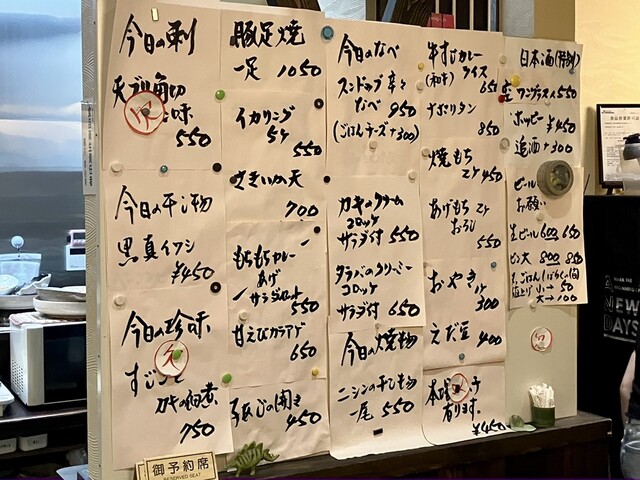 今日の刺
550
今日の干し物
黒真イワシ
¥450
今日の珍味
カキの佃煮
750
豚足焼
一足 1050
イカリング
5ケ
550
さきいかの天
700
もちもちカレー
あげ
サラダセット
550
甘えびカラアゲ
650
450
今日のなべ
スンドゥブ辛々
なべ 950
(ごはんチーズ+300)
カキのクリーム
コロッケ
サラダ付 550
タラバのクリーミー
コロッケ
サラダ付 650
今日の焼物
ニシンの干し物
一尾 550
牛すじカレー
(和牛) ライス
650
ナポリタン
850
焼もち
2ケ 450
あげもち 2ケ
おろし
550
おやき1ケ
300
えだ豆 400
有ります。
¥450
日本酒(特別)
ワングラス 550
ホッピー ¥450
追酒 +300
ビール
お願い
生ビール 600 650
ビン大 800 850
小→ 50
大→100
御予約席
RESERVED SEAT
NEW
DAYS